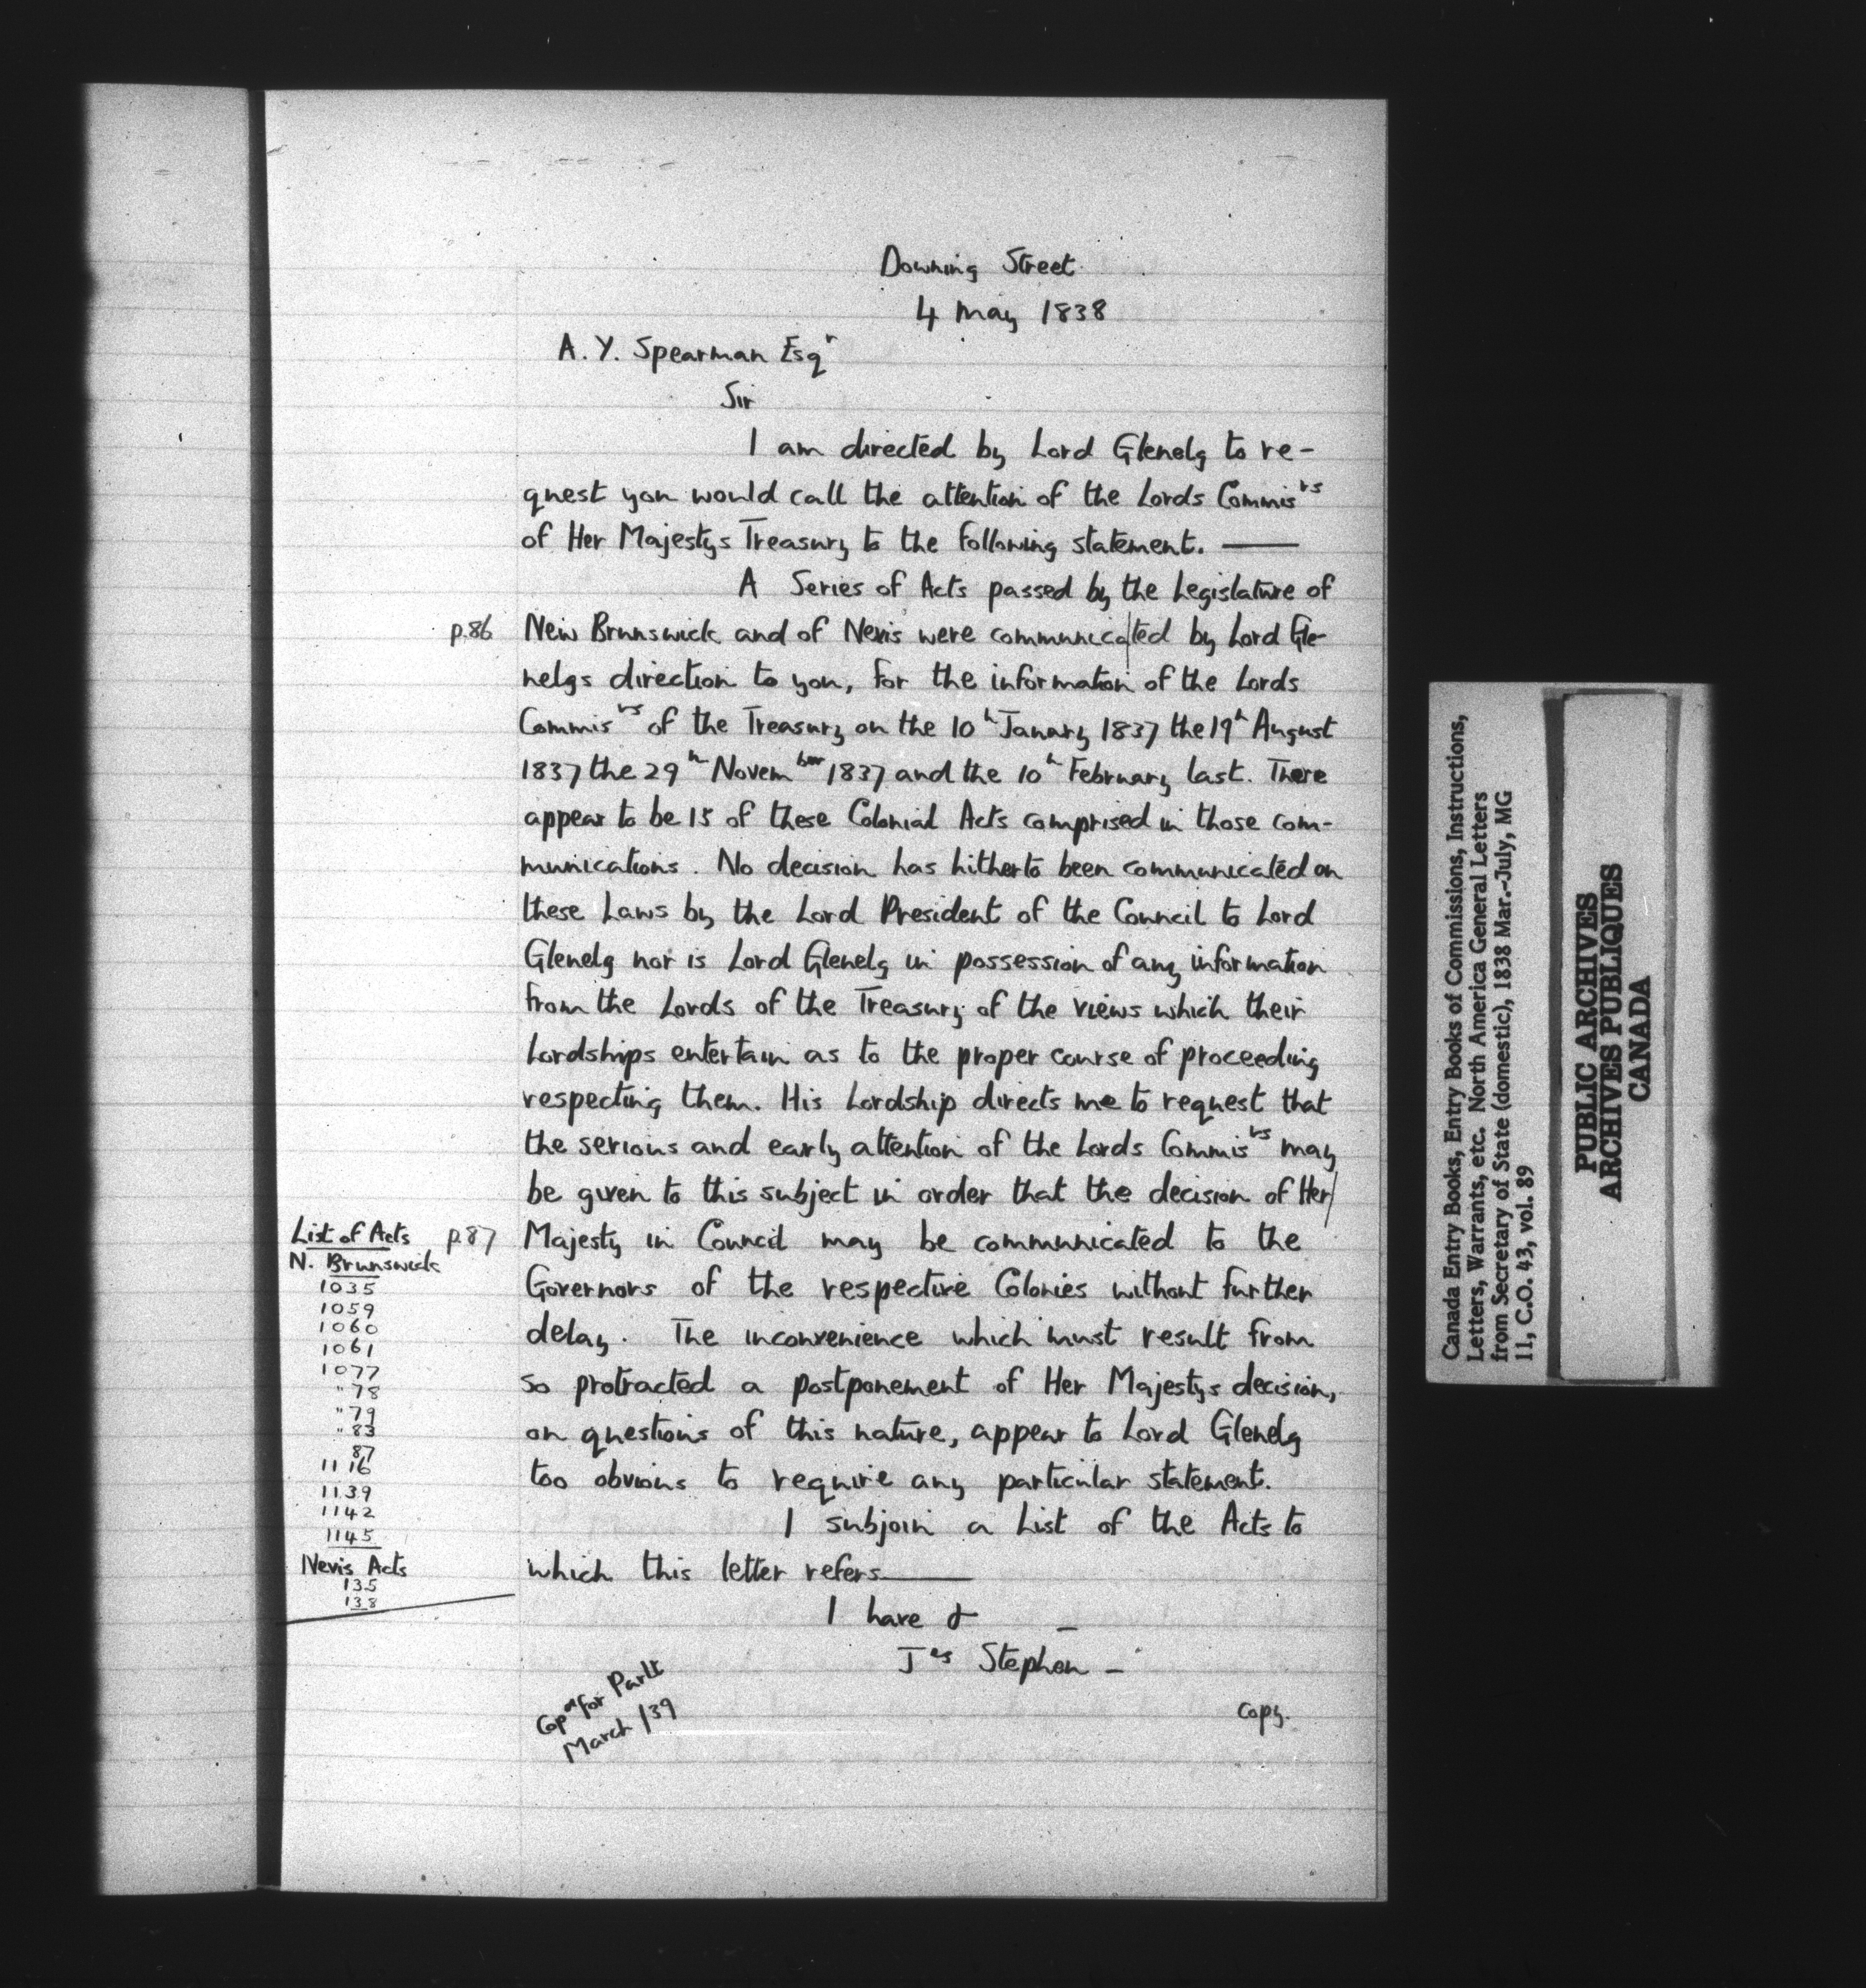 Downing Street
4 May 1838
A. Y. Spearman Esqr
Sir
I am directed by Lord Glenelg to re-
quest you would call the attention of the Lords Commisrs
of Her Majestys Treasury to the following statement. —
A Series of Acts passed by the Legislature of
p.86 New Brunswick and of Nevis were communica|ted by Lord Gle-
nelgs direction to you, for the information of the Lords
Commisrs of the Treasury on the 10h Janary 1837 the 19h August
1837 the 29h November 1837 and the 10h February last. There
appear to be 15 of these Colonial Acts comprised in those com-
munications. No decision has hitherto been communicated on
these Laws by the Lord President of the Council to Lord
Glenelg nor is Lord Glenelg in possession of any information
from the Lords of the Treasury of the views which their
Lordships entertain as to the proper course of proceeding
respecting them. His Lordship directs me to request that
the serious and early attention of the Lords Commisrs may
be given to this subject in order that the decision of Her|
p.87 Majesty in Council may be communicated to the
Governors of the respective Colonies without further
delay. The inconvenience which must result from
so protracted a postponement of Her Majestys decision,
on questions of this nature, appear to Lord Glenelg
too obvious to require any particular statement.
I subjoin a List of the Acts to
which this letter refers—
I have &
Jas Stephen –
List of Acts
N. Brunswick
1035
1059
1060
1061
1077
" 78
" 79
" 83
87
1116
1139
1142
1145
Nevis Acts
135
138
Copd for Parlt
March /39
copy.
Canada Entry Books, Entry Books of Commissions, Instructions,
Letters, Warrants, etc. North America General Letters
from Secretary of State (domestic), 1838 Mar.-July, MG
11, C.O. 43, vol. 89
PUBLIC ARCHIVES
ARCHIVES PUBLIQUES
CANADA